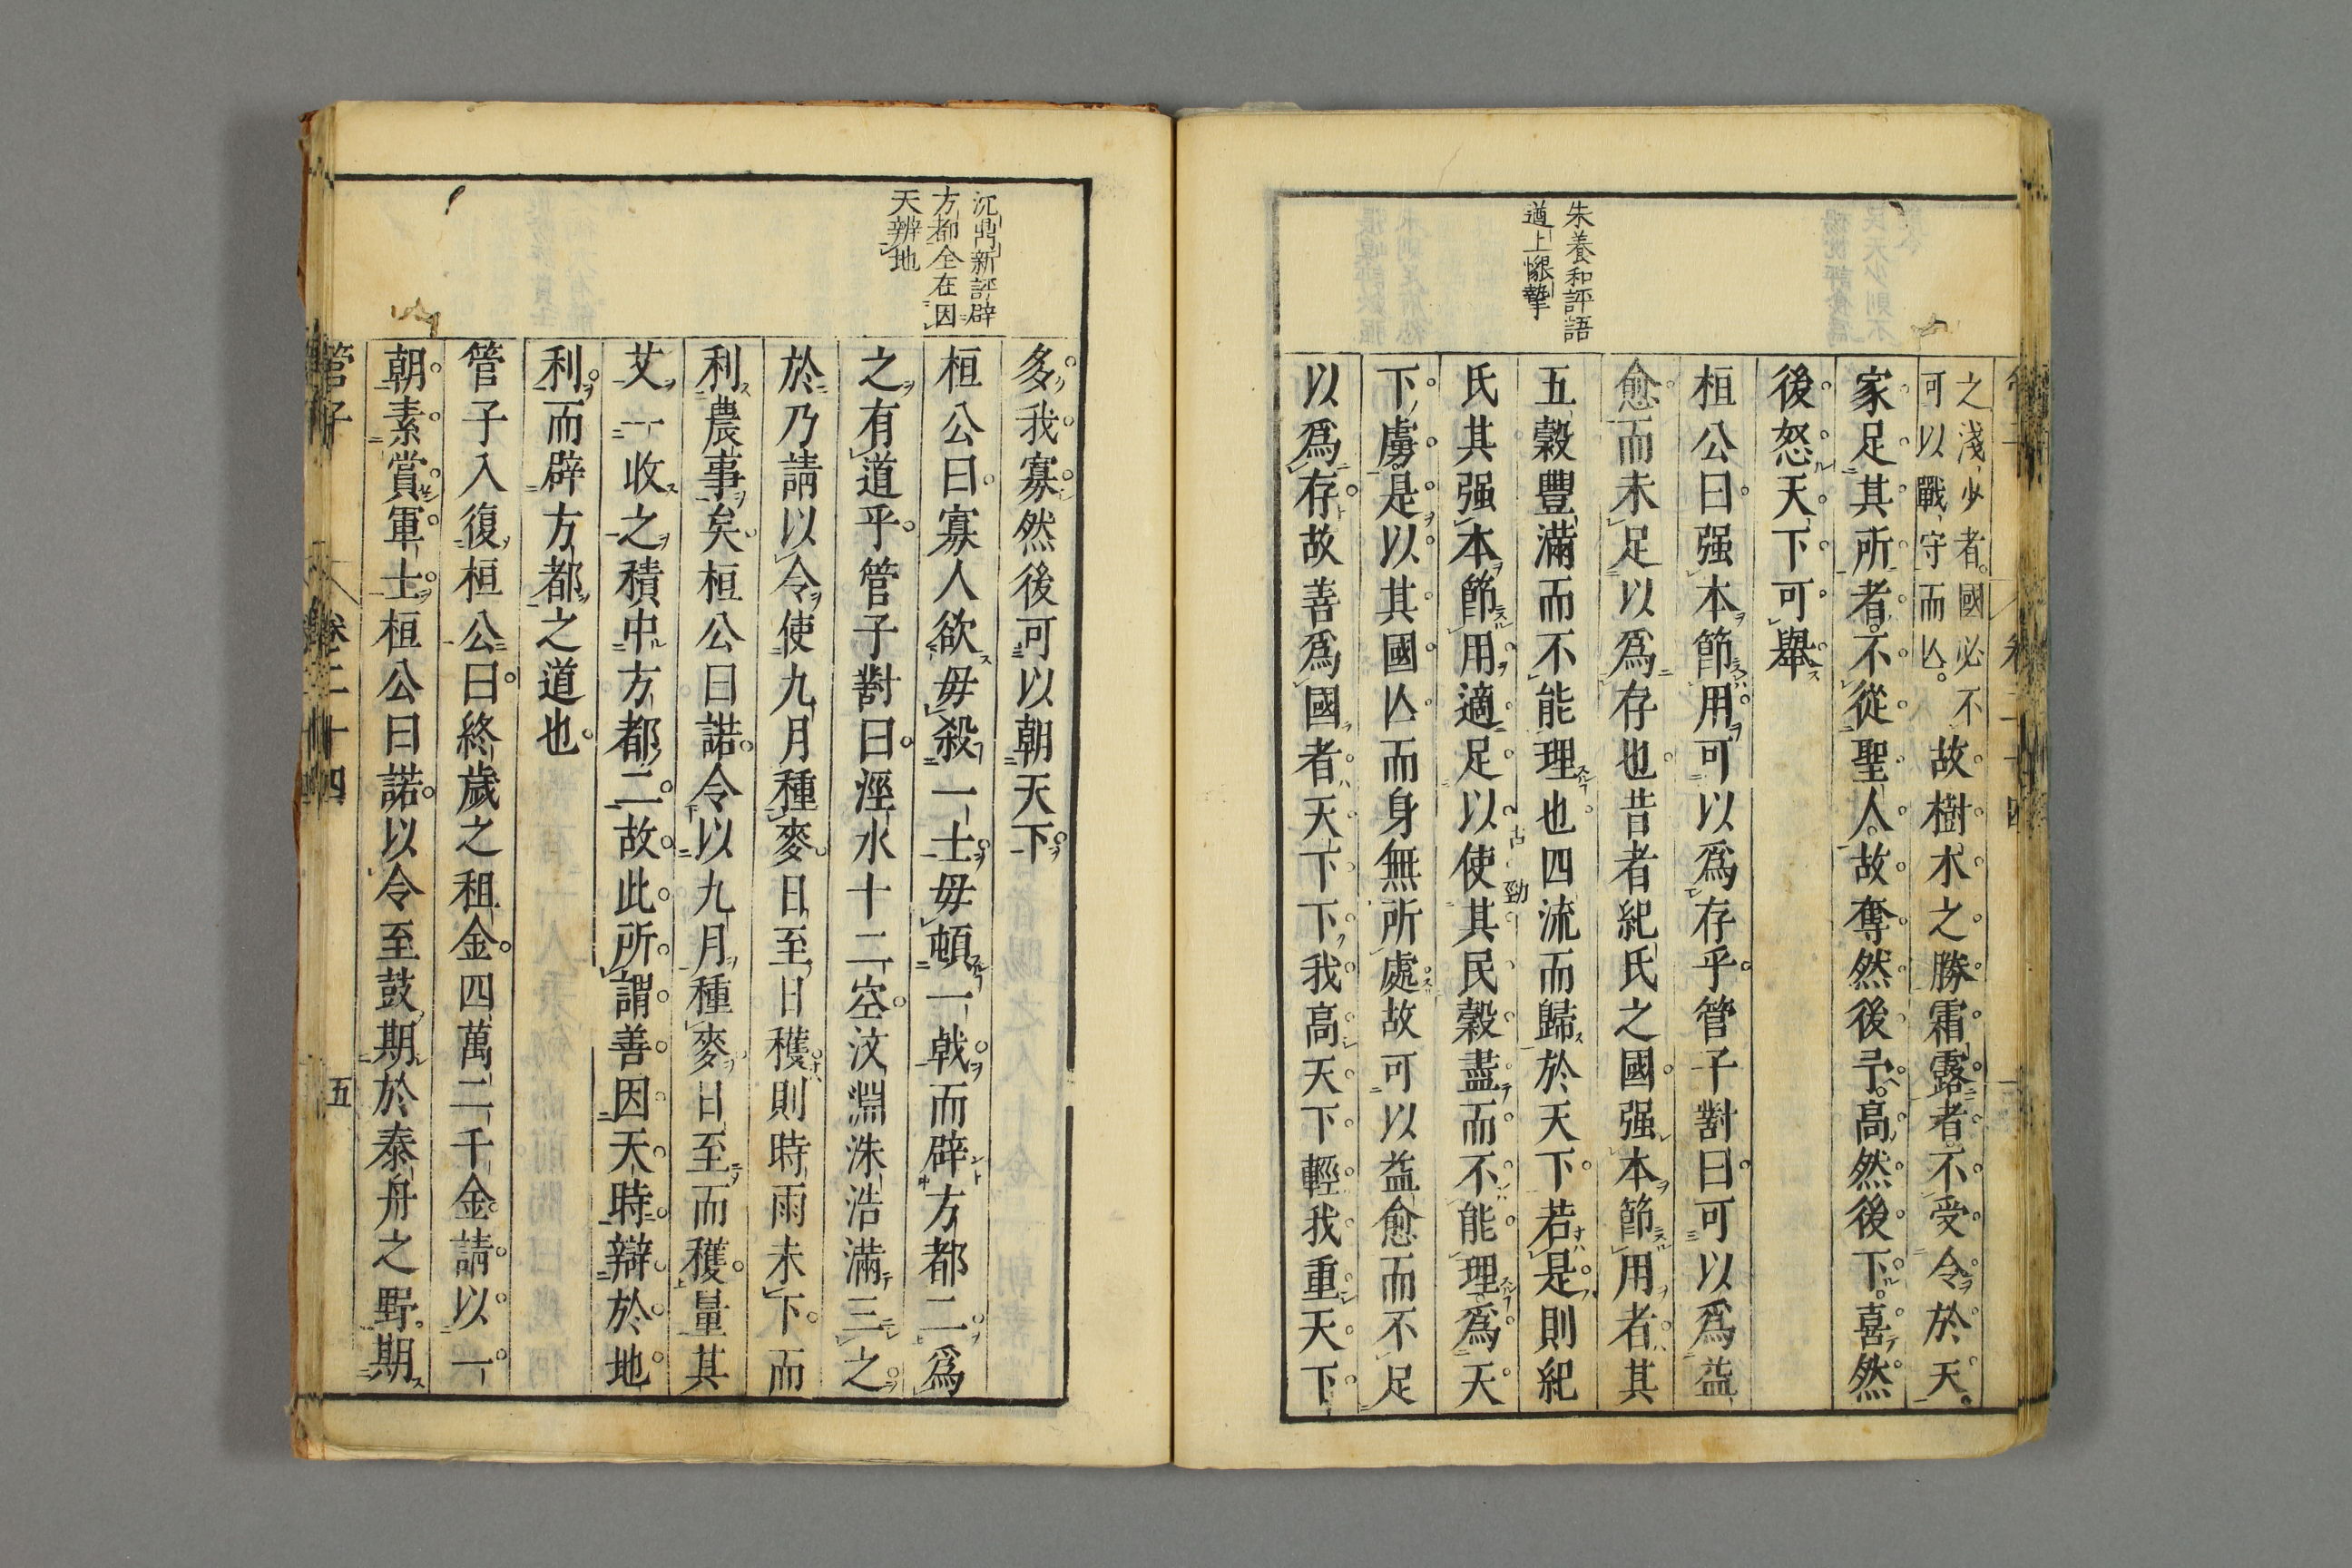 朱養和評語
遒上懇摯
之淺少者國必不
可以戰守而亾
故樹木之勝霜露者不受令於天
家足其所者不從聖人故奪然後予高然後下喜然
後怒天下可舉
桓公曰强本節用可以爲存乎管子對曰可以爲益
愈而未足以爲存也昔者紀氏之國强本節用者其
五穀豐滿而不能理也四流而歸於天下若是則紀
氏其强本節用適足以使其民穀盡而不能理爲天
下虜是以其國亾而身無所處故可以益愈而不足
以爲存故善爲國者天下下我高天下輕我重天下
沉鼎新評辟
方都全在因
天辨地
多我寡然後可以朝天下
桓公曰寡人欲毋殺一士毋頓一戟而辟方都二爲
之有道乎管子對曰涇水十二空汶淵洙浩滿三之
於乃請以令使九月種麥日至日穫則時雨未下而
利農事矣桓公曰諾令以九月種麥日至而穫量其
艾一收之積中方都二故此所謂善因天時辯於地
利而辟方都之道也
管子入復桓公曰終歲之租金四萬二千金請以一
朝素賞軍士桓公曰諾以令至鼓期於泰舟之野期
管子
卷二十四
五